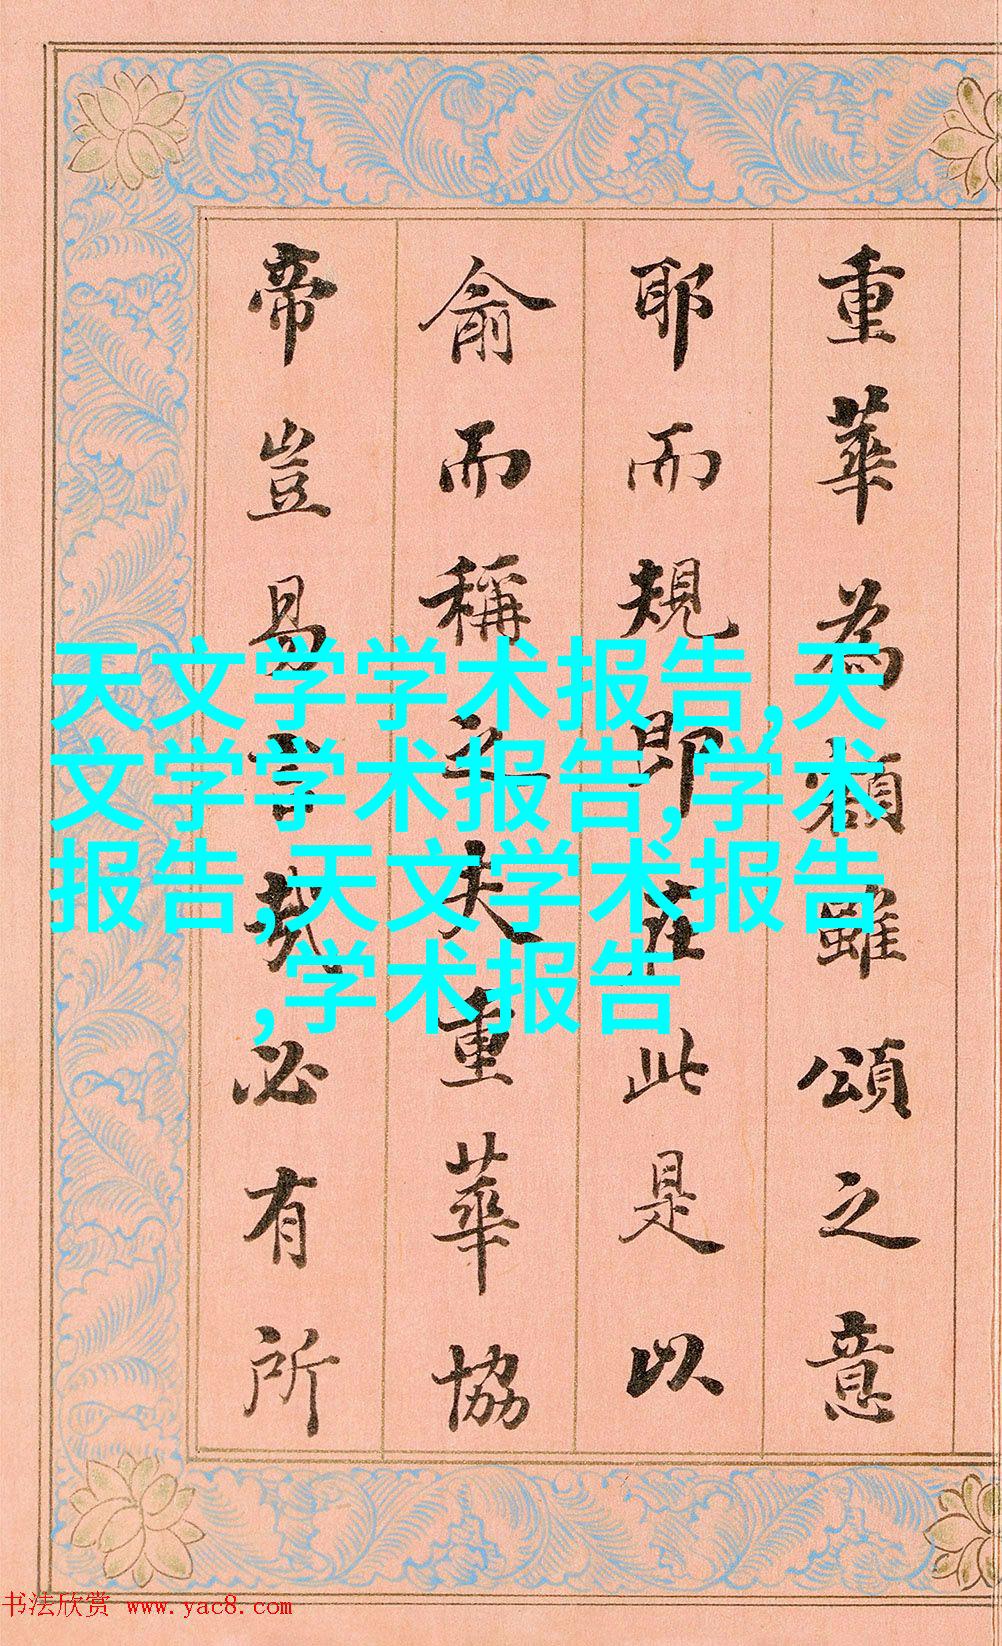 重華為額雖頌之意
耶而規即在此是以
俞而稱之夫重華協
帝豈易言哉必有所
天文学学术报告,天
文学学术报告,学术
报告,天文学术报告
,学术报告
书法欣赏 www.yac8.com